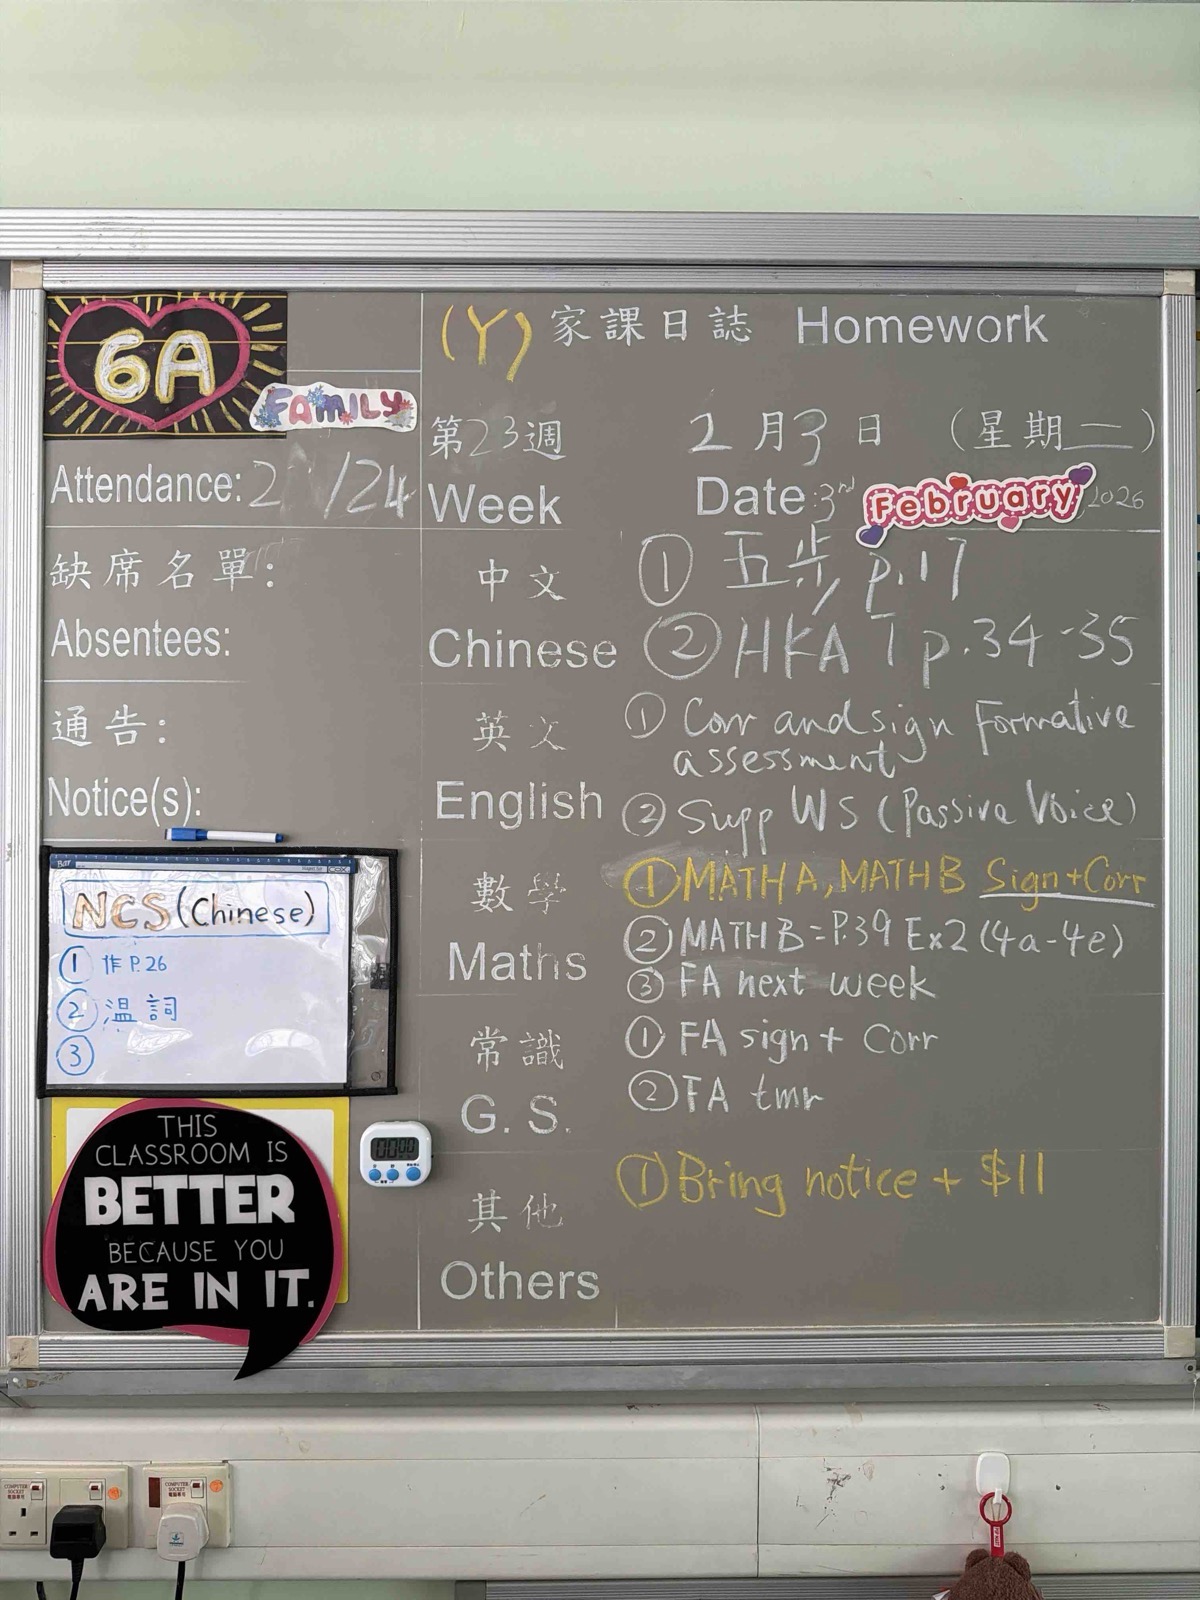 6A
FAMILY
(Y) 家課日誌 Homework
第23週 2月3日 (星期二)
Week Date: 3rd February 2026
Attendance: 2 /24
缺席名單:
Absentees:
通告:
Notice(s):
中文
Chinese
① 五步 p.17
② HKAT p.34-35
英文
English
① Corr and sign Formative
assessment
② Supp WS (Passive Voice)
數學
Maths
① MATH A, MATH B Sign+Corr
② MATH B = P.39 Ex2 (4a-4e)
③ FA next week
常識
G. S.
① FA sign + Corr
② FA tmr
其他
Others
① Bring notice + $11
NCS (Chinese)
① 作 P.26
② 温詞
③
THIS
CLASSROOM IS
BETTER
BECAUSE YOU
ARE IN IT.
00:00
COMPUTER
SOCKET
電腦專用
COMPUTER
SOCKET
電腦專用